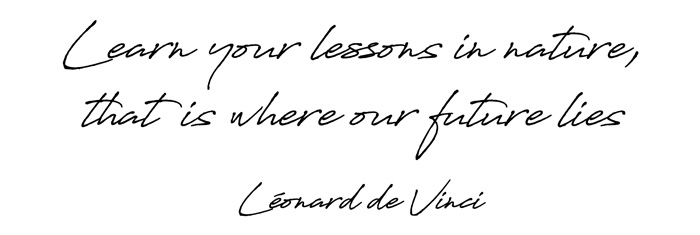 Learn your lessons in nature,
that is where our future lies
Léonard de Vinci